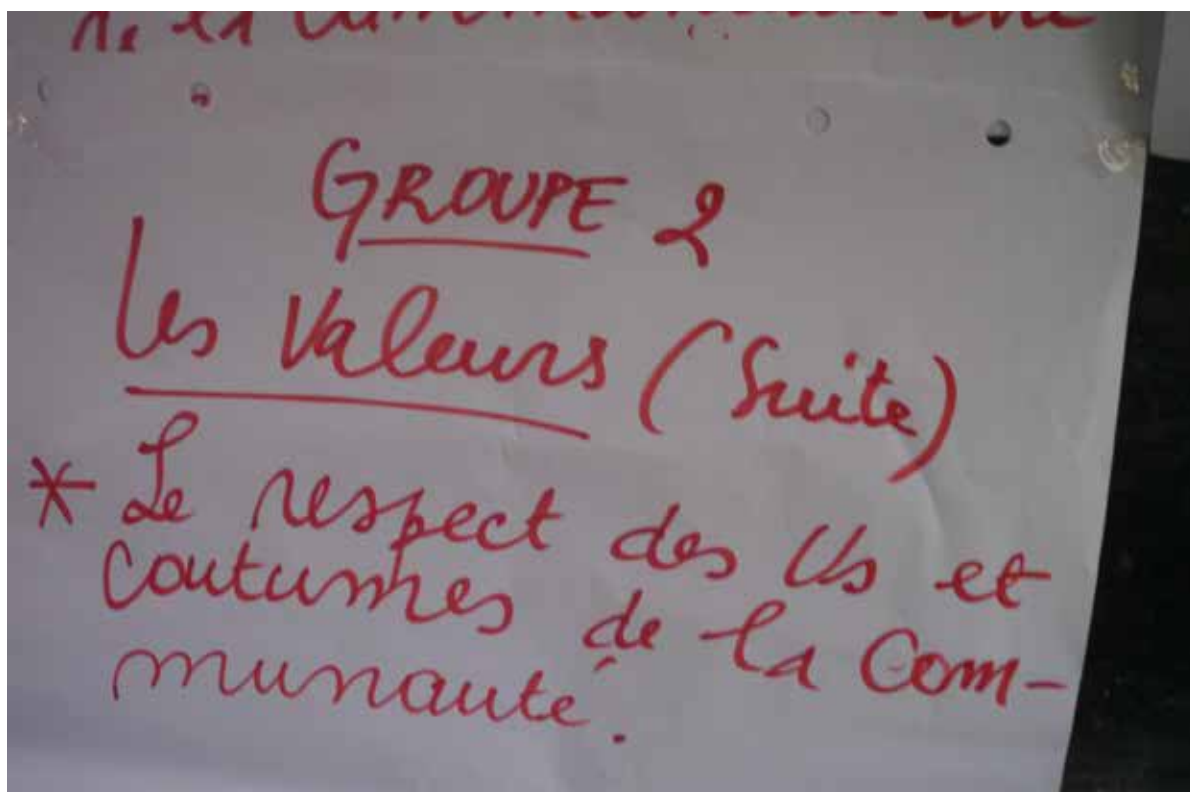 GROUPE 2
Les Valeurs (Suite)
* Le respect des Us et
coutumes de la Com-
munauté.